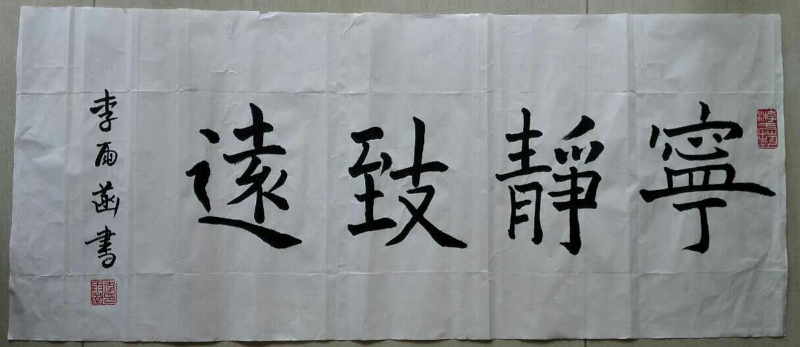 寧靜致遠
李雨菡書